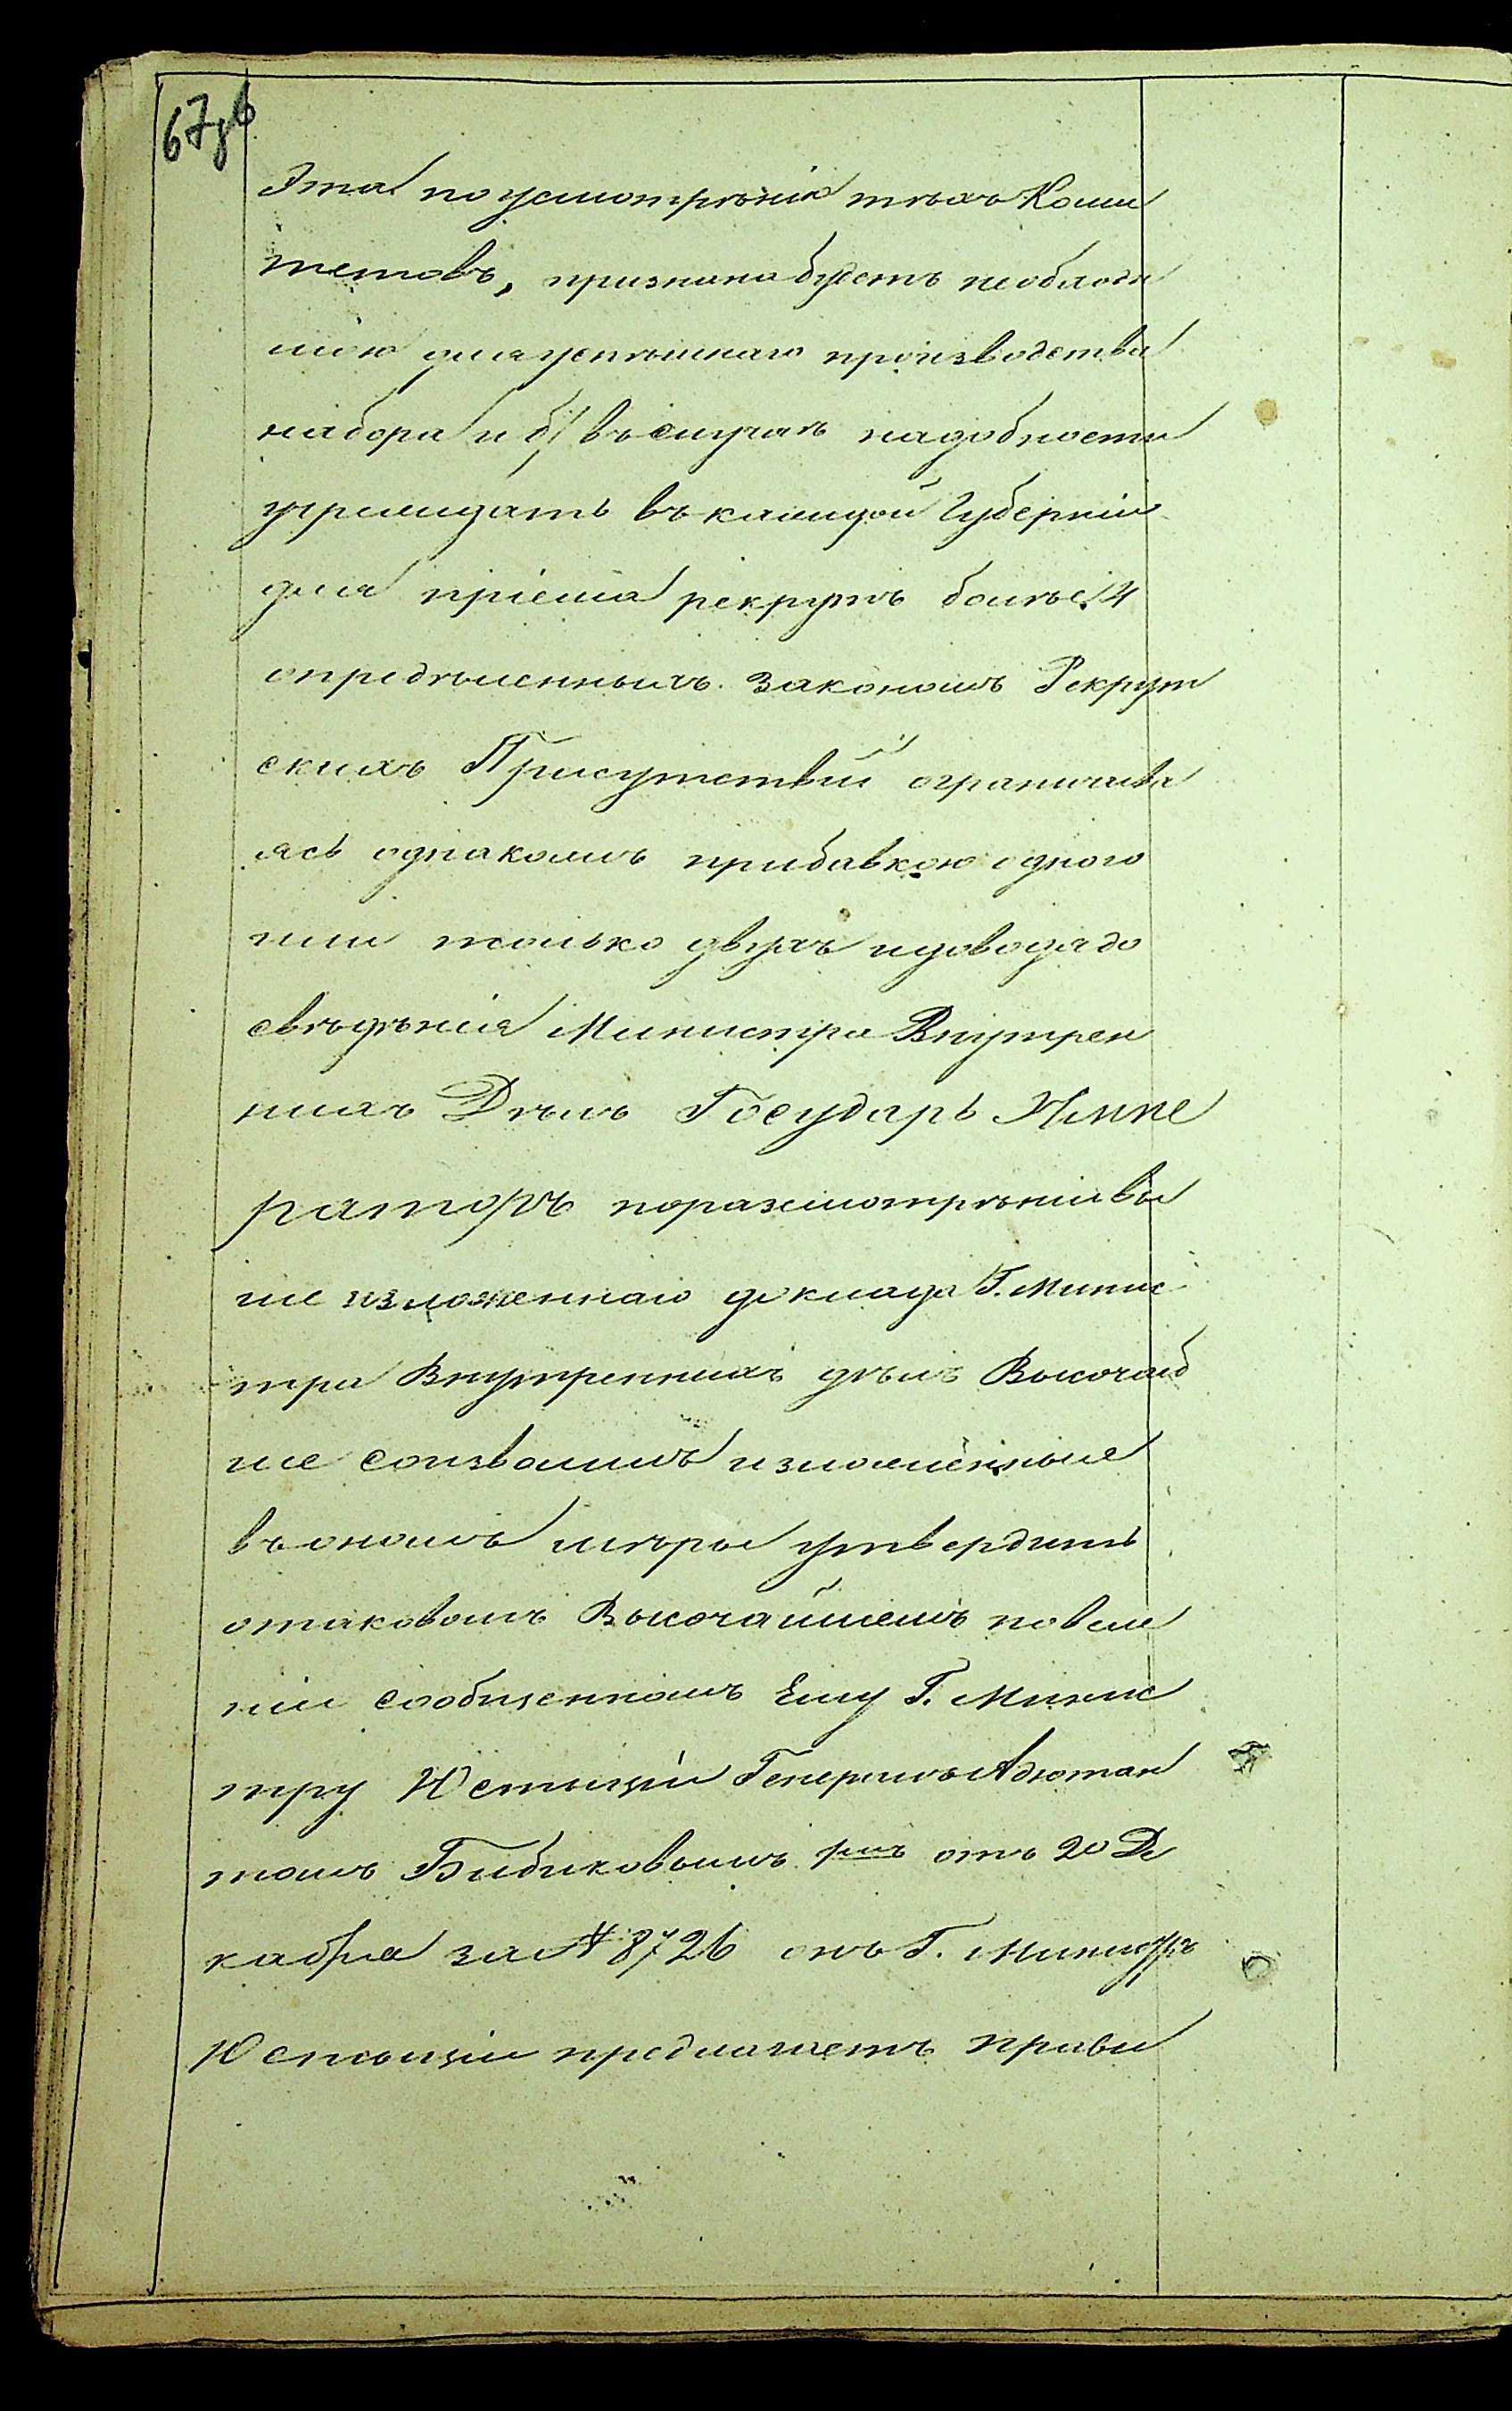 67 об
Эта по усмотрѣнію тѣхъ Коми
тетовъ, признана будетъ необходи
мою для успѣшнаго производства
набора и б/ въ случаѣ надобности
учреждать въ каждой Губерніи
для пріема рекрутъ болѣе 4
опредѣленныхъ закономъ Рекрут
скихъ Присутствій ограничива
ясь однакожъ прибавкою одного
или только двухъ и доводя до
свѣдѣнія Министра Внутрен
нихъ Дѣлъ Государь Импе
раторъ по разсмотрѣніи вы
ше изложеннаго доклада Г. Минис
тра Внутреннихъ дѣлъ Высочай
ше соизволилъ изложенные
въ ономъ мѣры утвердить
о таковомъ Высочайшемъ повеле
ніи сообщенномъ Ему Г. Минис
тру Юстиціи Генералъ Адютан
томъ Бибиковымъ отъ 20 Де
кабря за № 8726 онъ Г. Министръ
Юстиціи предлагаетъ прави